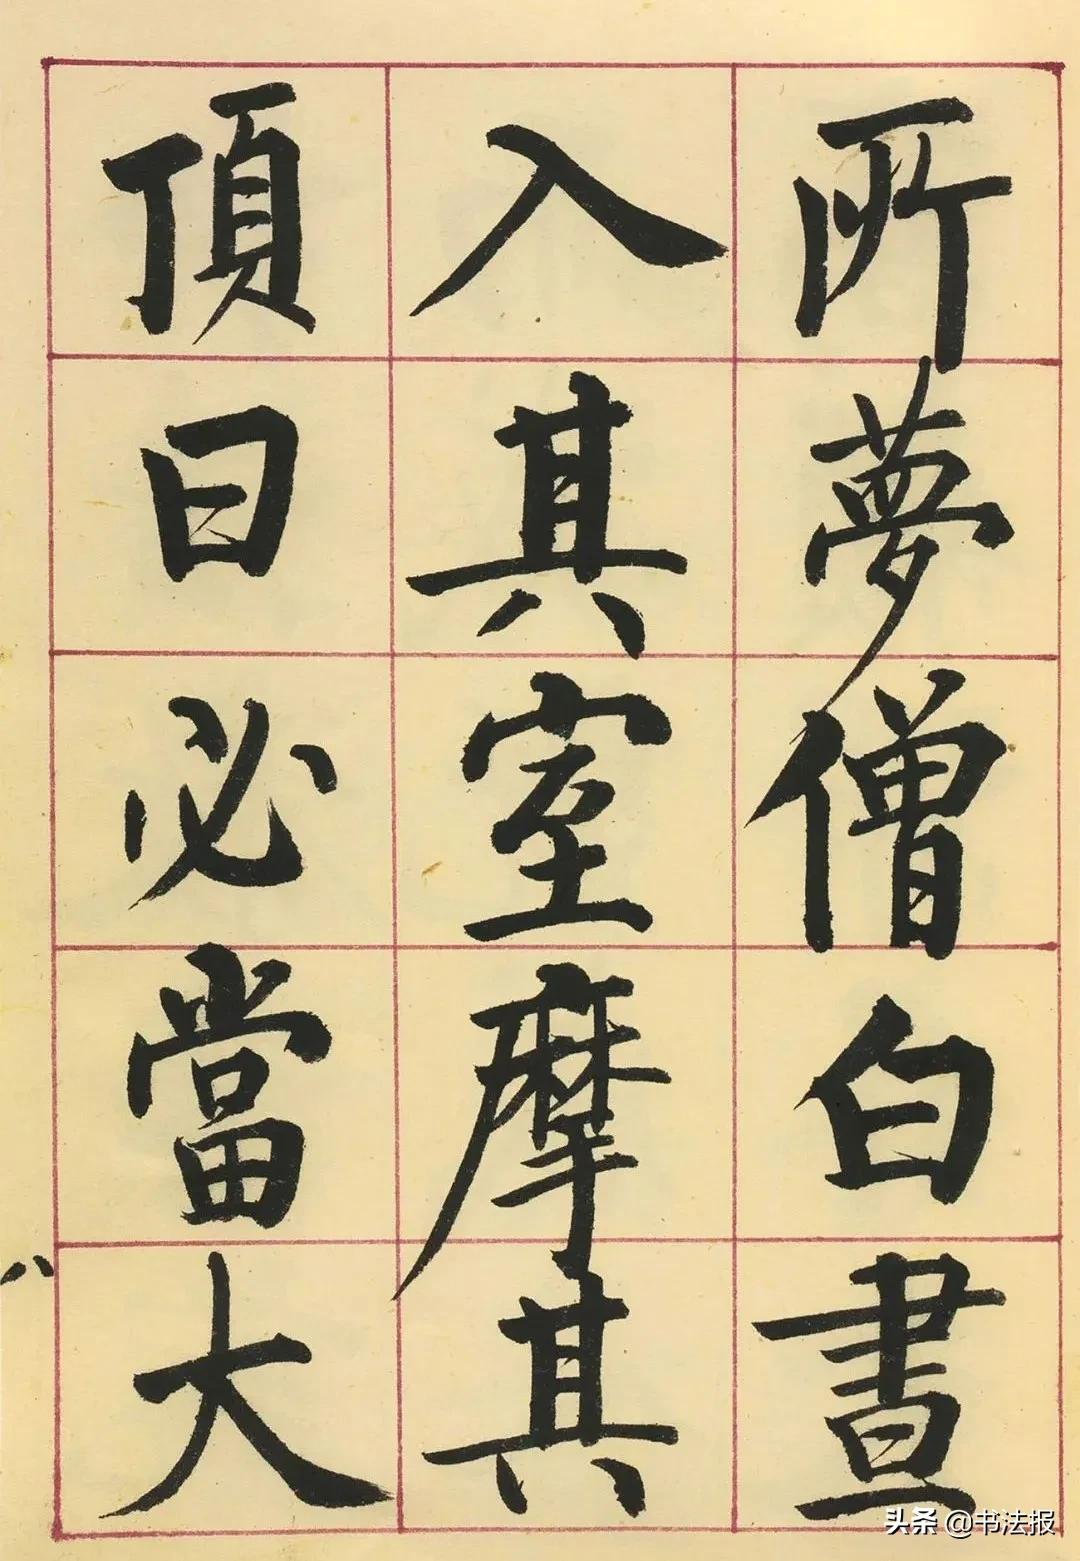 所夢僧白晝
入其室摩其
頂曰必當大
八
头条 @书法报